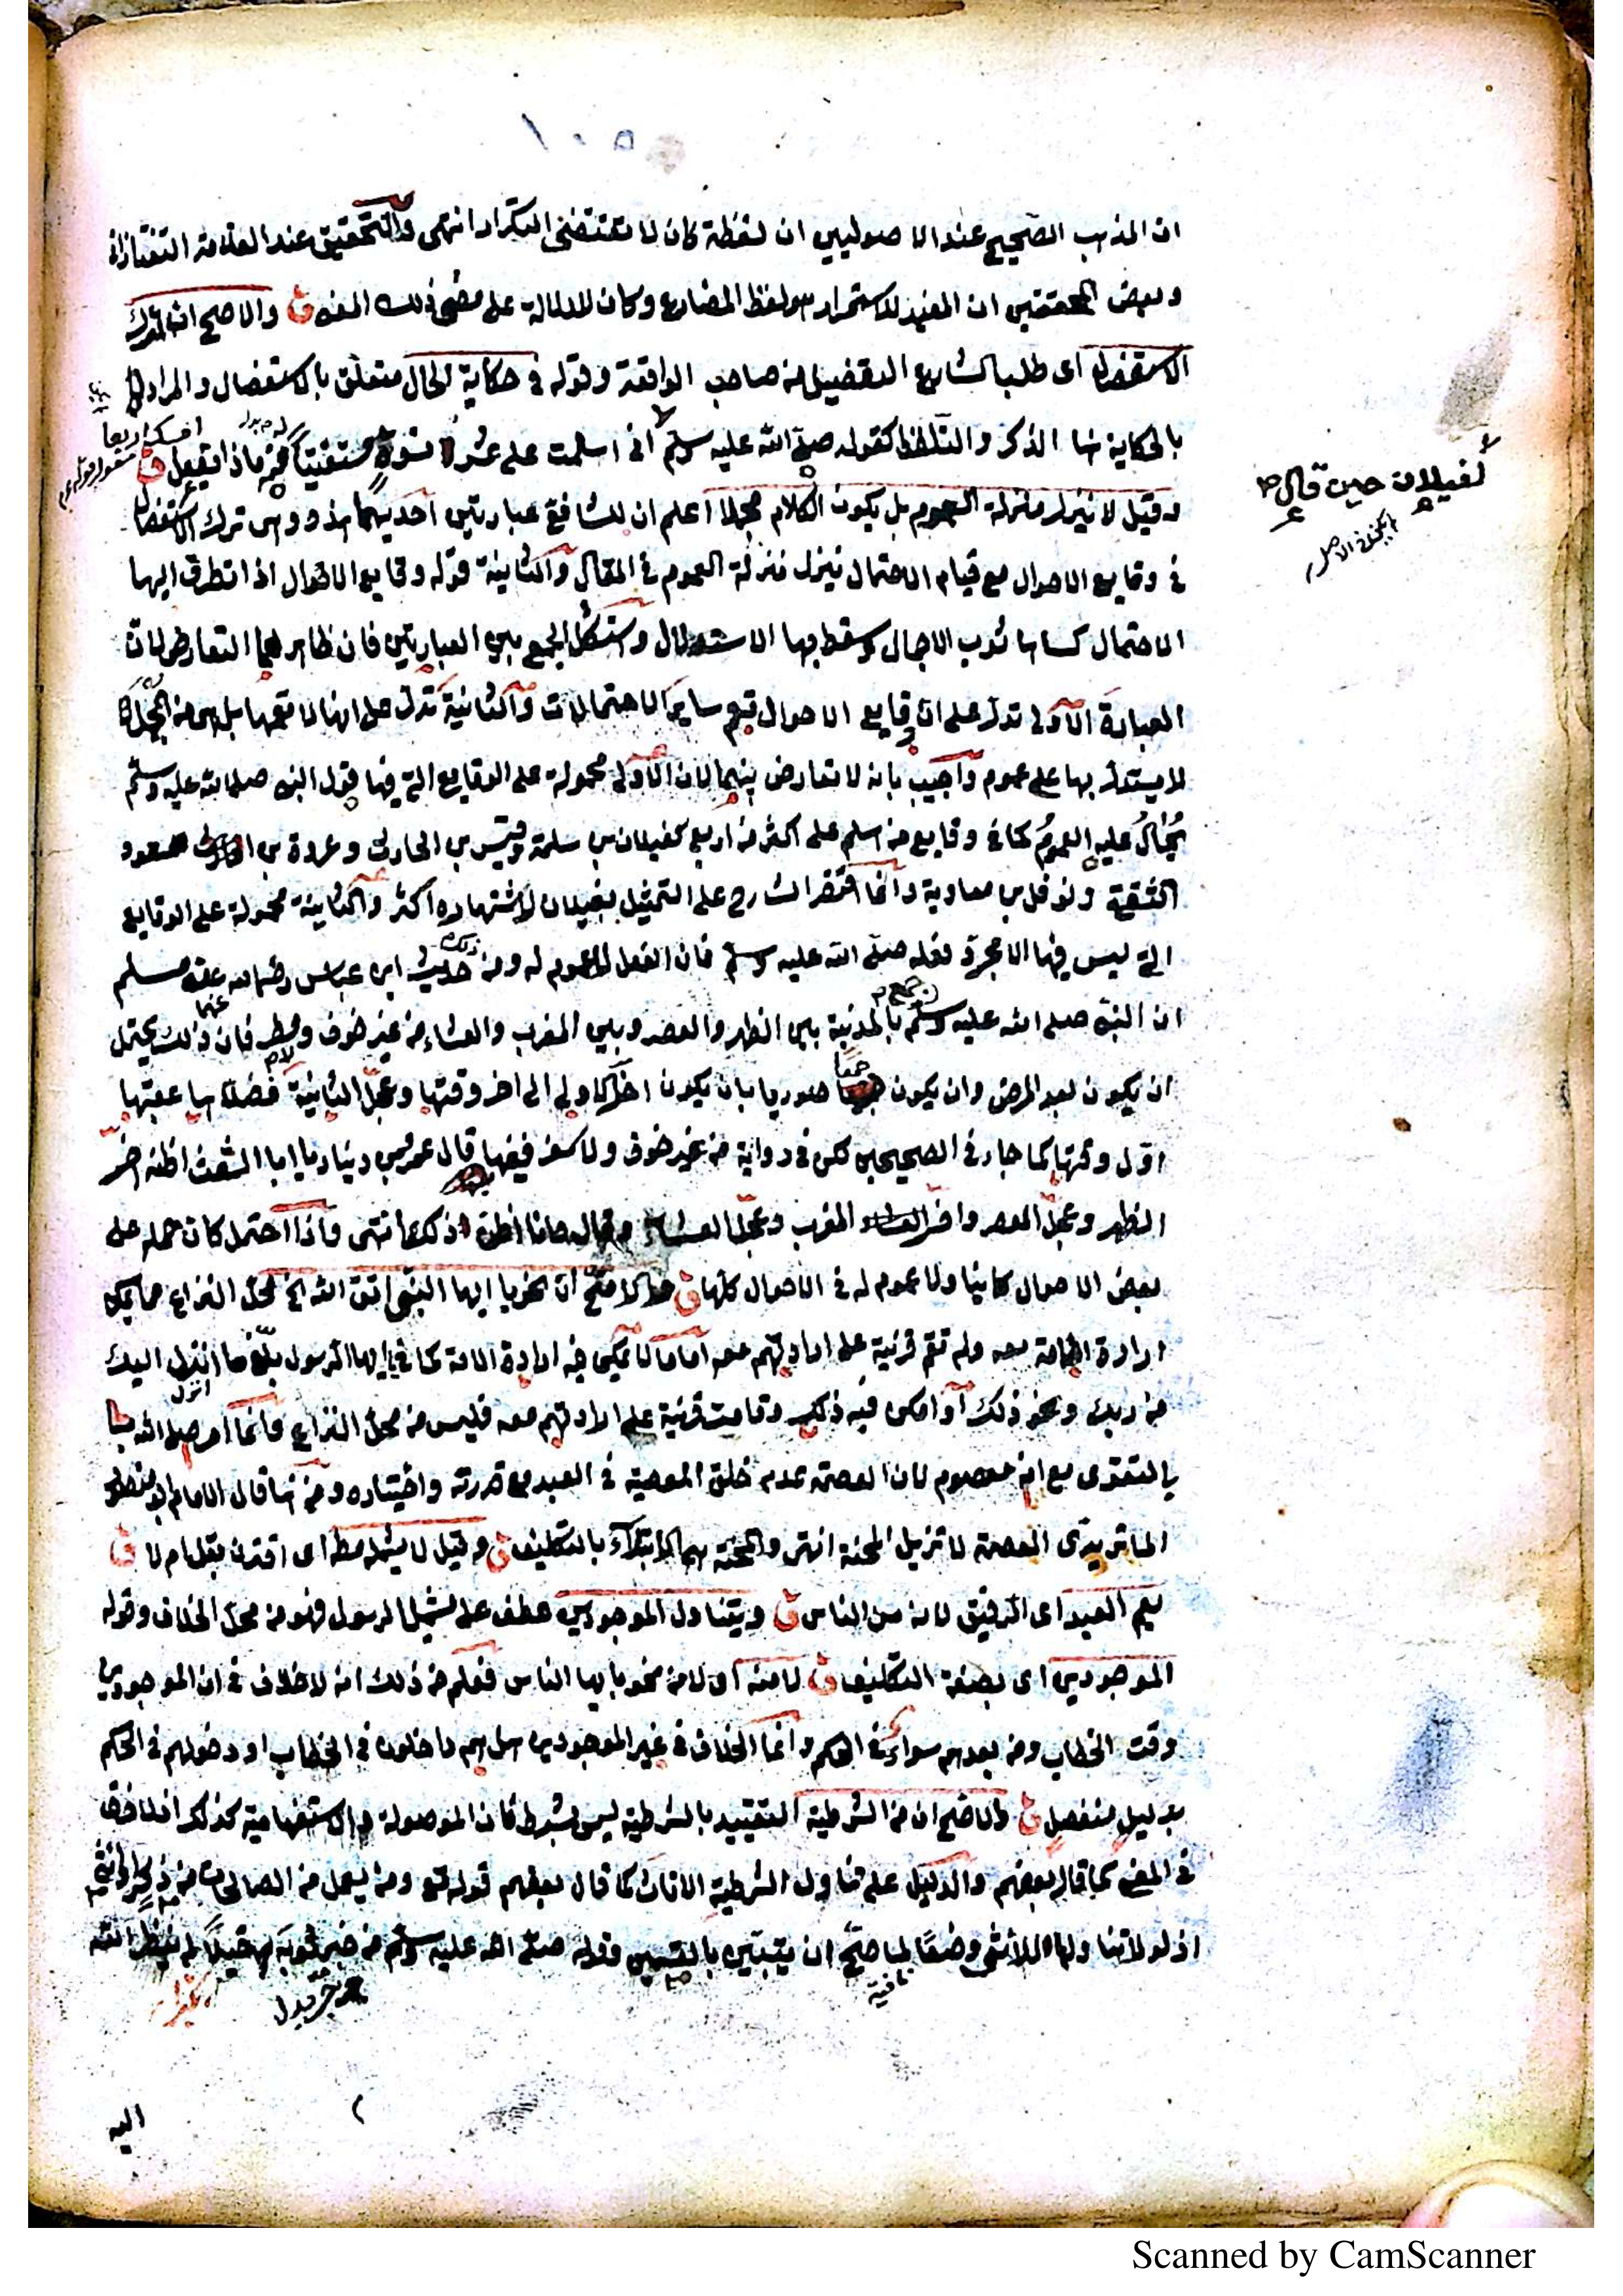 ان المذهب الصحيح عند الاصوليين ان لفظة كان لا تقتضى التكرار انتهى والتحقيق عند العلامة التفتازانى
وبعض المحققين ان المفيد للاستمرار هو لفظ المضارع وكان للدلالة على مضى ذلك المعنى ق والاصح ان ترك
الاستفصال اى طلب الشارع التفصيل من صاحب الواقعة وقوله فى حكاية الحال متعلق بالاستفصال والمراد
بالحكاية هنا الذكر والتلفظ كقوله صلى الله عليه وسلم انى اسلمت على عشر نسوة مستفتيا ماذا يفعل ق
وقيل لا ينزل منزلة العموم بل يكون الكلام مجملا اعلم ان للشافعى عبارتين احديهما هذه وهى ترك الاستفصال
فى وقايع الاحوال مع قيام الاحتمال ينزل منزلة العموم فى المقال والثانية قوله وقايع الاحوال اذا تطرق اليها
الاحتمال كساها ثوب الاجمال وسقط بها الاستدلال واستشكل الجمع بين العبارتين فان ظاهرهما التعارض لان
العبارة الاولى تدل على ان وقايع الاحوال تعم ساير الاحتمالات والثانية تدل على انها لا تعمها بل هى من المجمل
لا يستدل بها على عموم واجيب بانه لا تعارض بينهما لان الاولى محمولة على الوقايع التى فيها قول النبى صلى الله عليه وسلم
يحال عليه العموم كما فى وقايع من اسلم على اكثر من اربع كغيلان بن سلمة وقيس بن الحارث وعروة بن مسعود
الثقفى ونوفل بن معاوية وانما اقتصر الشارح على التمثيل بغيلان لاشتهاره اكثر والثانية محمولة على الوقايع
التى ليس فيها الا مجرد فعله صلى الله عليه وسلم فان الفعل لا عموم له ومن ذلك حديث ابن عباس رضى الله عنهما مسلم
ان النبى صلى الله عليه وسلم جمع بالمدينة بين الظهر والعصر وبين المغرب والعشاء من غير خوف ولا مطر فان ذلك يحتمل
ان يكون لعذر المرض وان يكون جمعا صوريا بان يكون اخر الاولى الى اخر وقتها وعجل الثانية فصلاها عقبها
اول وقتها كما جاء فى الصحيحين لكن فى رواية من غير خوف ولا سفر ففيها قال عمرو بن دينار يا ابا الشعث اظنه اخر
الظهر وعجل العصر واخر المغرب وعجل العشاء وقال وانا اظن ذلك انتهى واذا احتمل كان حمله على
بعض الاحوال كافيا ولا عموم له فى الاحوال كلها ق والاصح ان نحو يا ايها النبى اتق الله الخ محل النزاع مما يمكن
ارادة الامة معه ولم تقم قرينة على ارادتهم معه اما ما لا يمكن فيه ارادة الامة كما فى يا ايها الرسول بلغ ما انزل اليك
من ربك ونحو ذلك او امكن فيه ذلك وقامت قرينة على ارادتهم معه فليس من محل النزاع وانما امر صلى الله
بالتقوى مع انه معصوم لان العصمة عدم خلق المعصية فى العبد مع قدرته واختياره ومن هنا قال الامام ابو منصور
الماتريدى العصمة لا تزيل المحنة انتهى والمحنة هى الابتلاء بالتكليف ق وقيل لا يشمله مطلقا اى اقترن بقل ام لا ق
يعم العبد اى الرقيق لانه من الناس ق ويتناول الموجودين عطف على يشمل الرسول فهو من محل الخلاف وقوله
الموجودين اى بصفة التكليف ق لا منه اى لا من نحو يا ايها الناس فعلم من ذلك انه لا خلاف فى ان الموجودين
وقت الخطاب ومن بعدهم سواء فى الحكم وانما الخلاف فى غير الموجودين هل هم داخلون فى الخطاب او دخولهم فى الحكم
بدليل منفصل ق والاصح ان من الشرطية التقييد بالشرطية ليس بشرط فان الموصولة والاستفهامية كذلك
فى المعنى كما قال بعضهم والدليل على تناول الشرطية الاناث كما قال بعضهم قوله تع ومن يعمل من الصالحات من ذكر او انثى
اذ لولا تناولها للانثى وضعا لما صح ان يتبين بالقسمين وقوله صلى الله عليه وسلم من جر ثوبه خيلاء لم ينظر الله
اليه
لغيلان حين قال
امسك اربعا